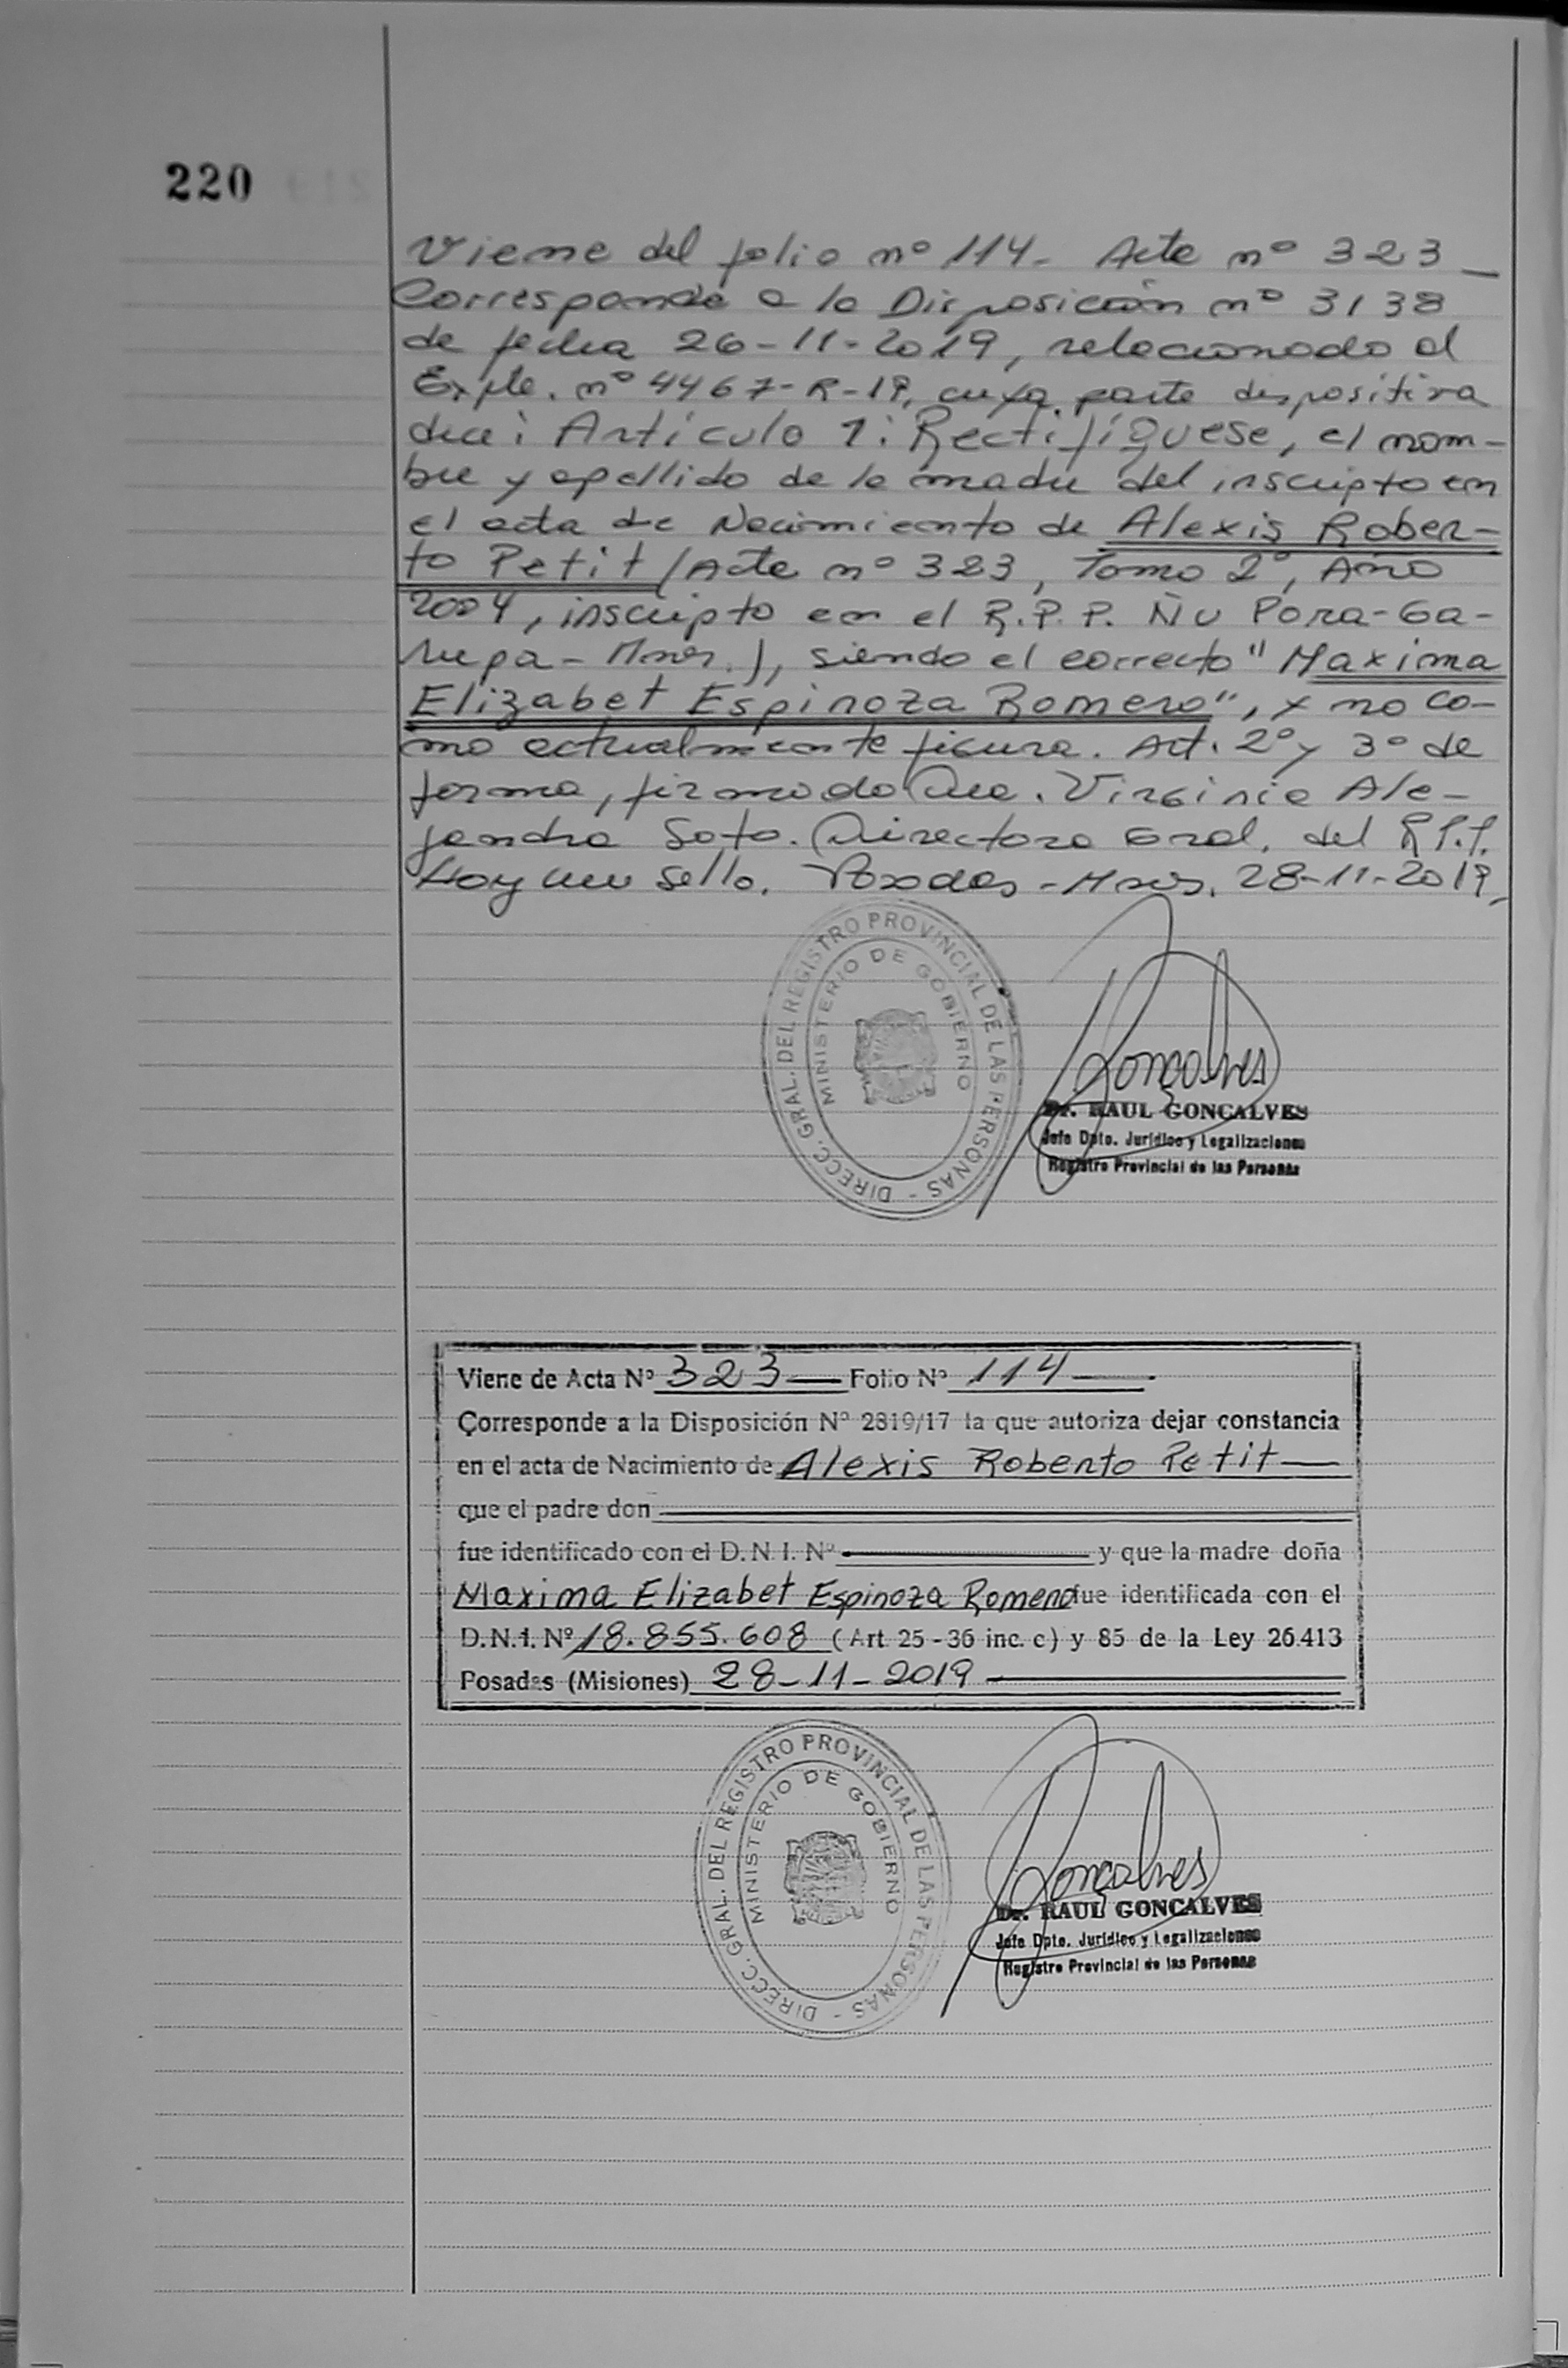 220
Viene del folio nº 114- Acta nº 323_
Corresponde a la Disposición nº 3138
de fecha 26-11-2019, relacionado al
Expte. nº 4467-R-19, cuya parte dispositiva
dice: Artículo 1: Rectifíquese, el nom-
bre y apellido de la madre del inscripto en
el acta de Nacimiento de Alexis Rober-
to Petit (Acta nº 323, Tomo 2º, Año
2004, inscripto en el R.P.P. Ñu Pora-Ga-
rupa-Mnes.), siendo el correcto "Maxima
Elizabet Espinoza Romero", y no co-
mo actualmente figura. Art. 2º y 3º de
forma, firmado Dra. Virginia Ale-
jandra Soto. Directora Gral. del R.P.P.
Hay un sello. Posadas-Mnes. 28-11-2019
DIRECC. GRAL. DEL REGISTRO PROVINCIAL DE LAS PERSONAS -
MINISTERIO DE GOBIERNO
Goncalves
Dr. RAUL GONCALVES
Jefe Dpto. Jurídico y Legalizaciones
Registro Provincial de las Personas
Viene de Acta Nº 323 Folio Nº 114
Corresponde a la Disposición Nº 2819/17 la que autoriza dejar constancia
en el acta de Nacimiento de Alexis Roberto Petit
que el padre don
fue identificado con el D.N.I. Nº y que la madre doña
Maxima Elizabet Espinoza Romero fue identificada con el
D.N.I. Nº 18.855.608 (Art. 25-36 inc. c) y 85 de la Ley 26.413
Posadas (Misiones) 28-11-2019
DIRECC. GRAL. DEL REGISTRO PROVINCIAL DE LAS PERSONAS -
MINISTERIO DE GOBIERNO
Goncalves
Dr. RAUL GONCALVES
Jefe Dpto. Jurídico y Legalizaciones
Registro Provincial de las Personas